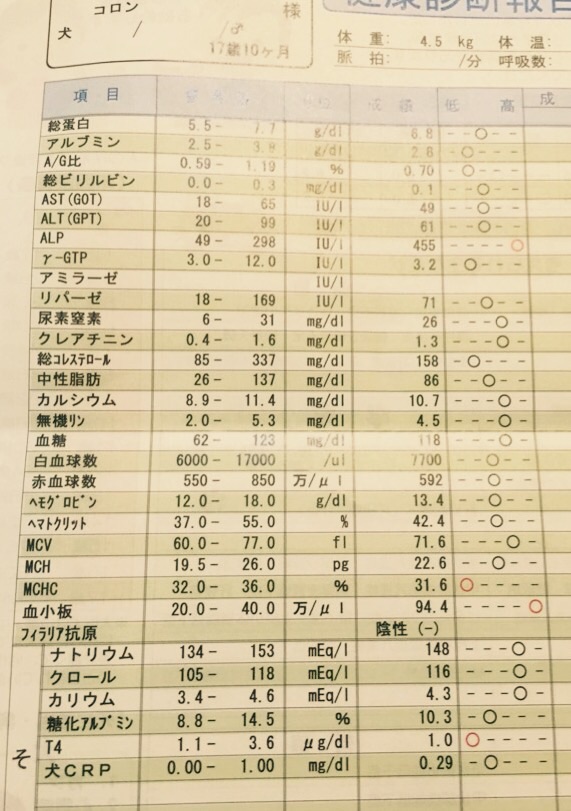 コロン 様
犬 / /♂
17歳10ヶ月
健康診断報告
体 重: 4.5 kg 体 温:
脈 拍: /分 呼吸数:
項 目 成 績 低 高 成
総蛋白 5.5- 7.7 g/dl 6.8 --○--
アルブミン 2.5- 3.8 g/dl 2.8 -○---
A/G比 0.59- 1.19 % 0.70 -○---
総ビリルビン 0.0- 0.3 mg/dl 0.1 --○--
AST(GOT) 18- 65 IU/l 49 --○--
ALT(GPT) 20- 99 IU/l 61 --○--
ALP 49- 298 IU/l 455 ----○
γ-GTP 3.0- 12.0 IU/l 3.2 -○---
アミラーゼ IU/l
リパーゼ 18- 169 IU/l 71 --○--
尿素窒素 6- 31 mg/dl 26 ---○-
クレアチニン 0.4- 1.6 mg/dl 1.3 ---○-
総コレステロール 85- 337 mg/dl 158 -○---
中性脂肪 26- 137 mg/dl 86 --○--
カルシウム 8.9- 11.4 mg/dl 10.7 ---○-
無機リン 2.0- 5.3 mg/dl 4.5 ---○-
血糖 62- 123 mg/dl 118 ---○-
白血球数 6000- 17000 /ul 7700 --○--
赤血球数 550- 850 万/μl 592 --○--
ヘモグロビン 12.0- 18.0 g/dl 13.4 --○--
ヘマトクリット 37.0- 55.0 % 42.4 --○--
MCV 60.0- 77.0 fl 71.6 ---○-
MCH 19.5- 26.0 pg 22.6 --○--
MCHC 32.0- 36.0 % 31.6 ○----
血小板 20.0- 40.0 万/μl 94.4 ----○
フィラリア抗原 陰性(-)
ナトリウム 134- 153 mEq/l 148 ---○-
クロール 105- 118 mEq/l 116 ---○-
カリウム 3.4- 4.6 mEq/l 4.3 ---○-
糖化アルブミン 8.8- 14.5 % 10.3 -○---
そ T4 1.1- 3.6 μg/dl 1.0 ○----
犬CRP 0.00- 1.00 mg/dl 0.29 -○---